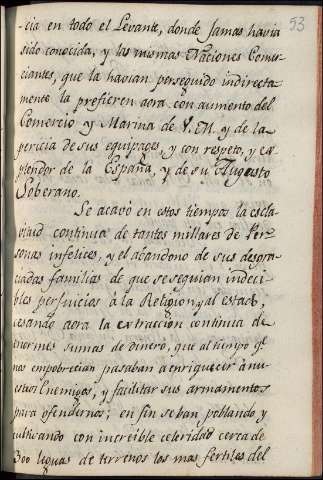 53
cia en todo el Levante, donde Jamas havia
sido conocida, y las mismas Naciones Comer-
ciantes, que la havian perseguido indirecta-
mente la prefieren aora con aumento del
Comercio y Marina de V.M. y de la
pericia de sus equipages, y con respeto, y es-
plendor de la España, y de su Augusto
Soberano.
Se acavó en estos tiempos la escla-
vitud continua de tantos millares de Per-
sonas infelices, y el abandono de sus desgra-
ciadas familias de que se seguian indeci-
bles perjuicios à la Religion y al estado,
cesando aora la extraccion continua de
enormes sumas de dinero, que al tiempo qe
nos empobrecian pasaban a enriquecer à nu-
estros Enemigos, y facilitar sus armamentos
para ofendernos; en fin se ban poblando y
cultivando con increible celeridad cerca de
300 leguas de terrenos los mas fertiles del